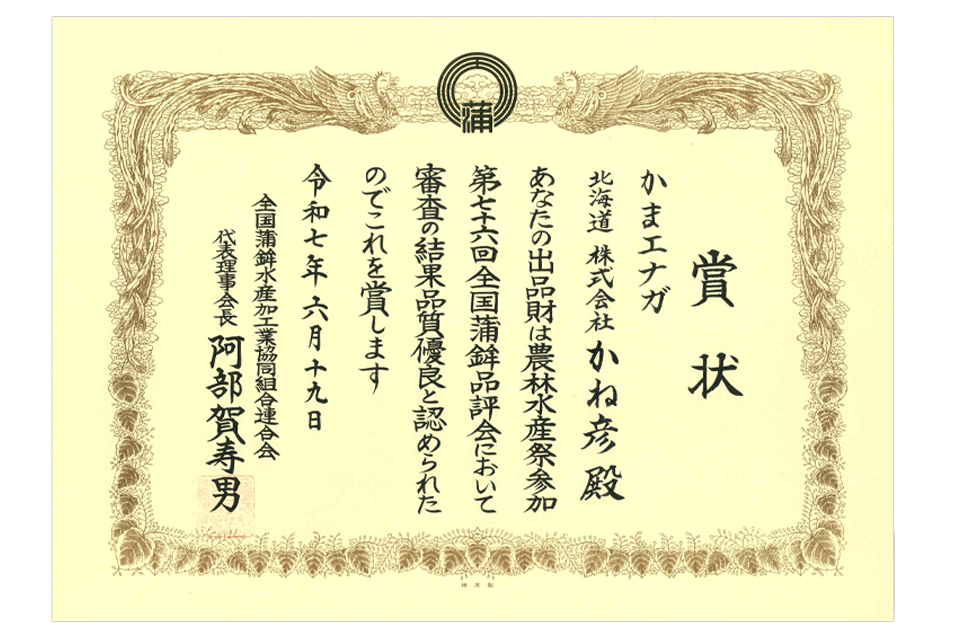 蒲
賞状
かまエナガ
北海道 株式会社 かね彦 殿
あなたの出品財は農林水産祭参加
第七十六回全国蒲鉾品評会において
審査の結果品質優良と認められた
のでこれを賞します
令和七年六月十九日
全国蒲鉾水産加工業協同組合連合会
代表理事会長 阿部賀寿男